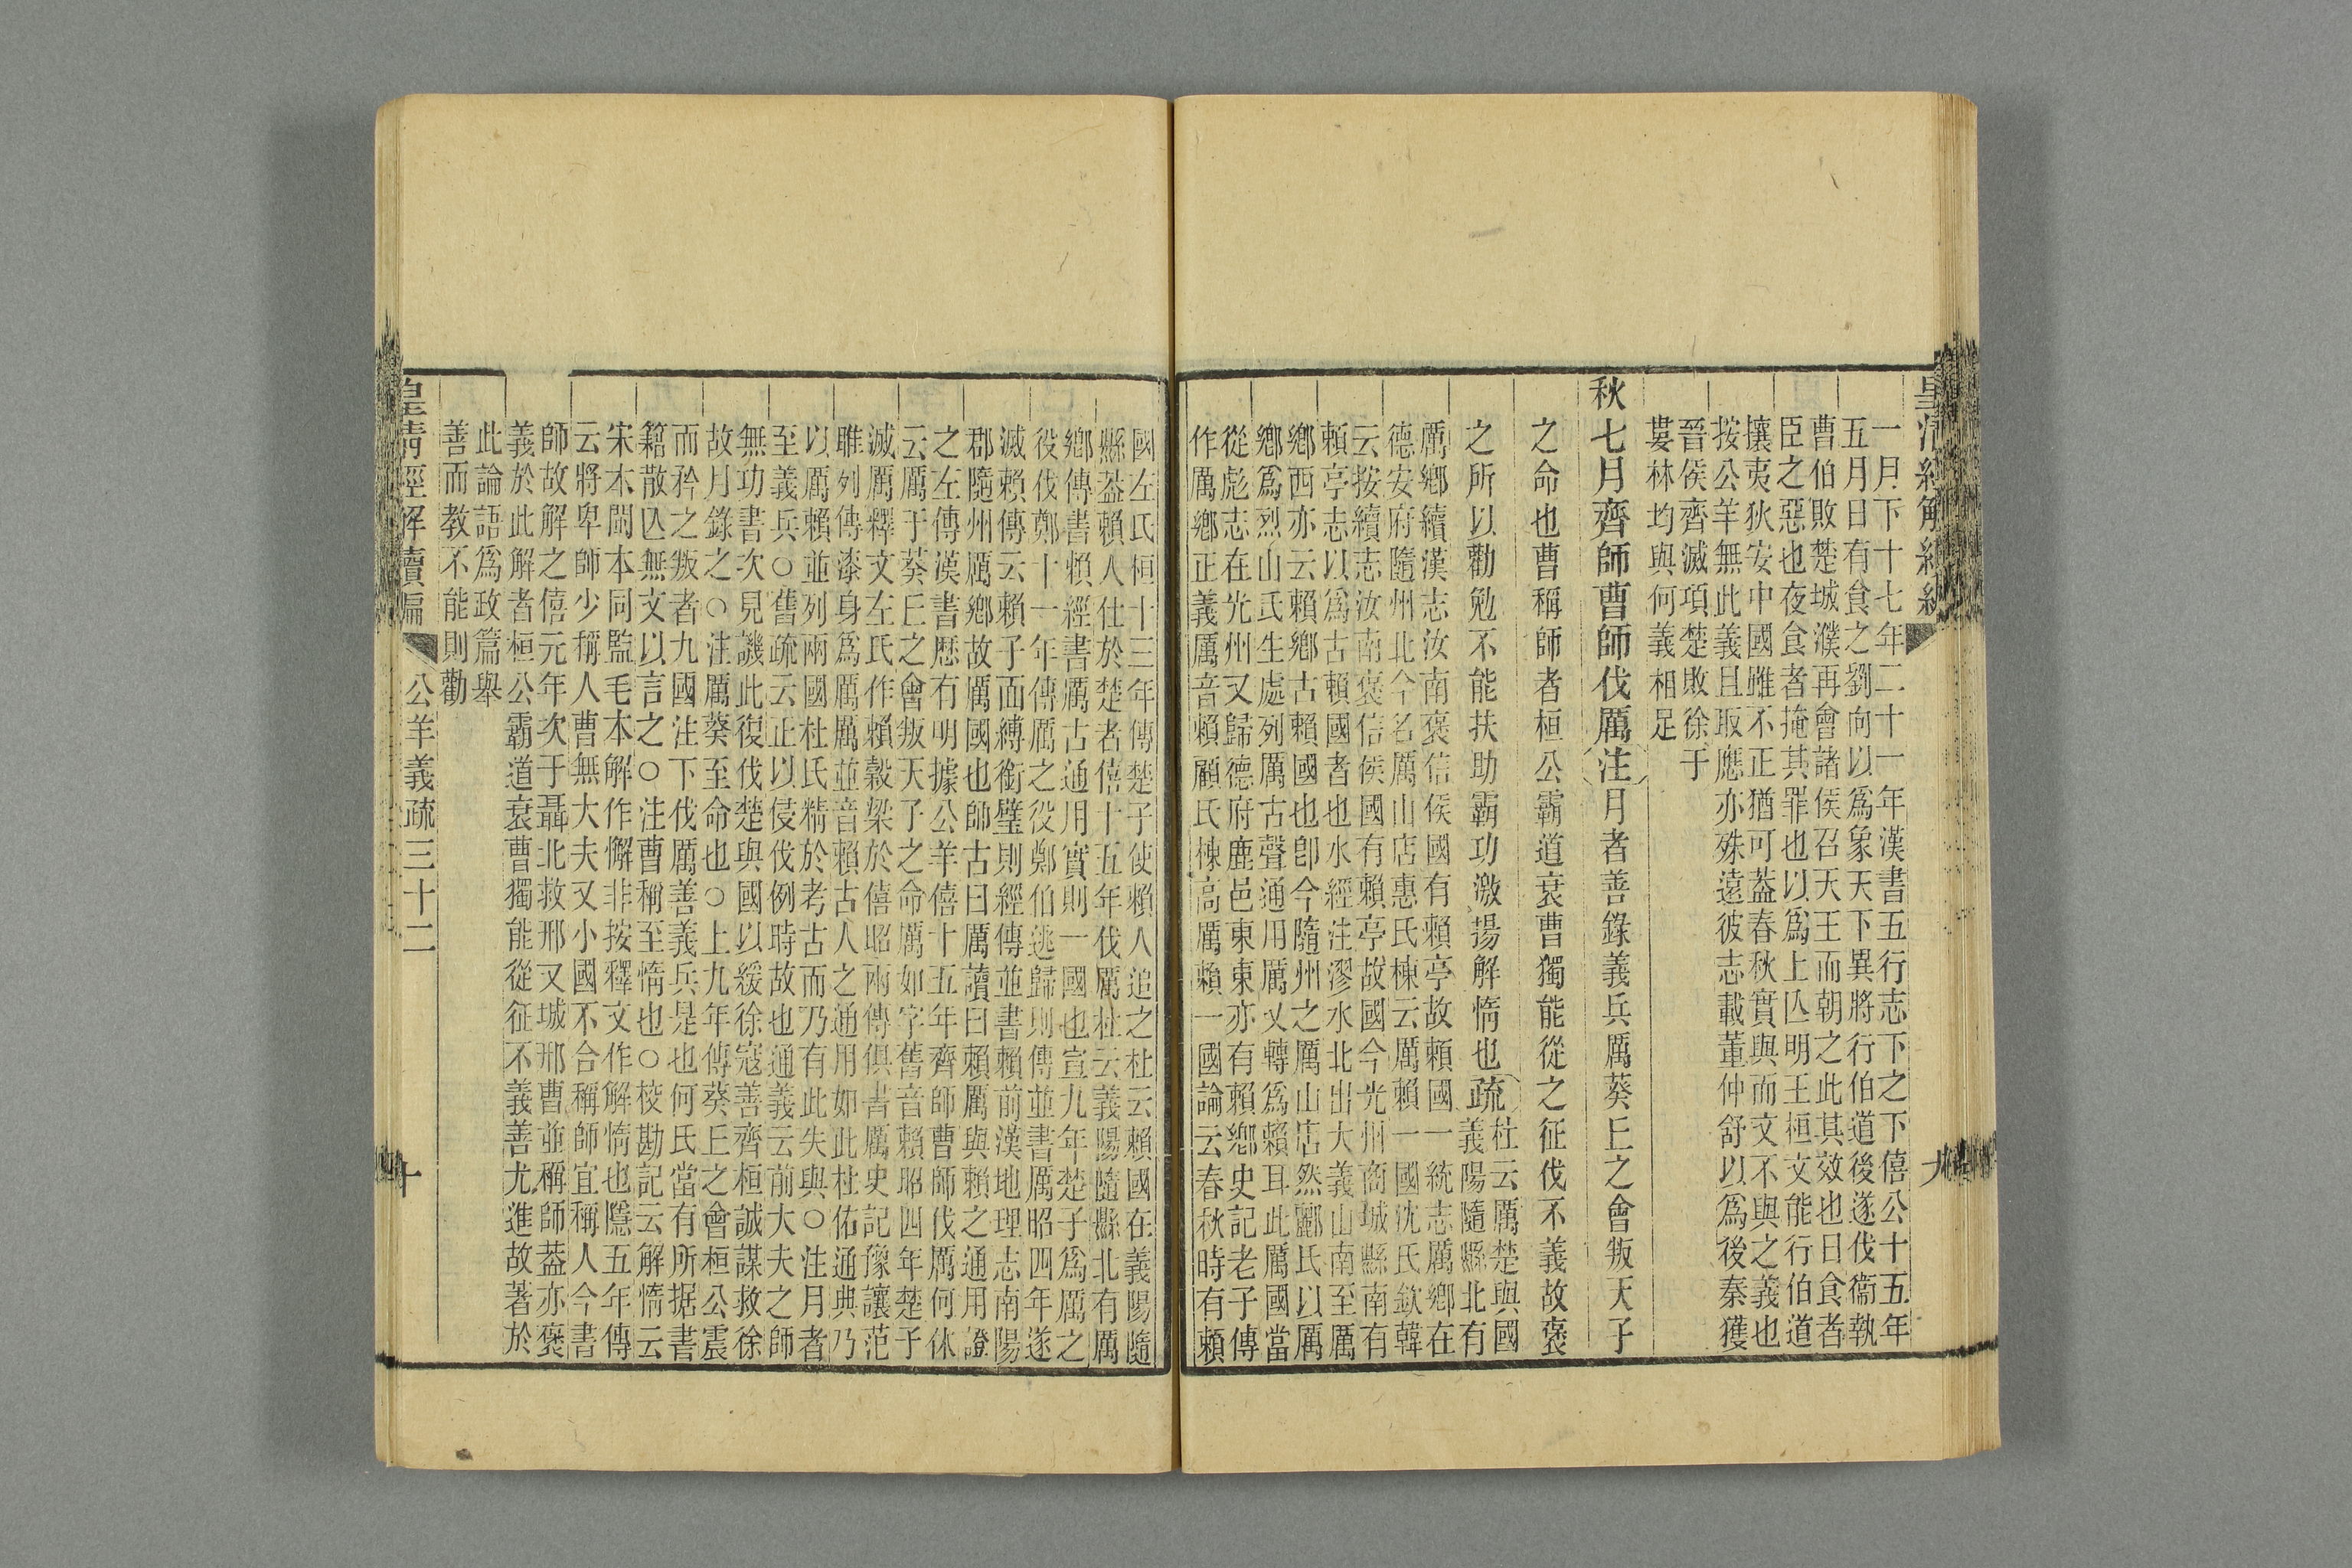 皇清經解續編
一月下十七年二十一年漢書五行志下之下僖公十五年
五月日有食之劉向以爲象天下異將行伯道後遂伐衞執
曹伯敗楚城濮再會諸侯召天王而朝之此其效也日食者
臣之惡也夜食者掩其罪也以爲上亾明王桓文能行伯道
攘夷狄安中國雖不正猶可葢春秋實與而文不與之義也
按公羊無此義且取應亦殊遠彼志載董仲舒以爲後秦獲
晉侯齊滅項楚敗徐于
婁林均與何義相足
秋七月齊師曹師伐厲注月者善錄義兵厲葵丘之會叛天子
之命也曹稱師者桓公霸道衰曹獨能從之征伐不義故褒
之所以勸勉不能扶助霸功激揚解惰也疏杜云厲楚與國
義陽隨縣北有
厲鄉續漢志汝南褒信侯國有賴亭故賴國一統志厲鄉在
德安府隨州北今名厲山店惠氏棟云厲賴一國沈氏欽韓
云按續志汝南褒信侯國有賴亭故國今光州商城縣南有
賴亭志以爲古賴國者也水經注漻水北出大義山南至厲
鄉西亦云賴鄉古賴國也卽今隨州之厲山店然酈氏以厲
鄉爲烈山氏生處列厲古聲通用厲又轉爲賴耳此厲國當
從彪志在光州又歸德府鹿邑東東亦有賴鄉史記老子傳
作厲鄉正義厲音賴顧氏棟高厲賴一國論云春秋時有賴
九
國左氏桓十三年傳楚子使賴人追之杜云賴國在義陽隨
縣葢賴人仕於楚者僖十五年伐厲杜云義陽隨縣北有厲
鄉傳書賴經書厲古通用實則一國也宣九年楚子爲厲之
役伐鄭十一年傳厲之役鄭伯逃歸則傳並書厲昭四年遂
滅賴傳云賴子面縛銜璧則經傳並書賴前漢地理志南陽
郡隨州厲鄉故厲國也師古曰厲讀曰賴厲與賴之通用證
之左傳漢書歷有明據公羊僖十五年齊師曹師伐厲何休
云厲于葵丘之會叛天子之命厲如字舊音賴昭四年楚子
滅厲釋文左氏作賴穀梁於僖昭兩傳俱書厲史記豫讓范
雎列傳漆身爲厲厲並音賴古人之通用如此杜佑通典乃
以厲賴並列兩國杜氏精於考古而乃有此失與○注月者
至義兵○舊疏云正以侵伐例時故也通義云前大夫之師
無功書次見譏此復伐楚與國以緩徐寇善齊桓誠謀救徐
故月錄之○注厲葵至命也○上九年傳葵丘之會桓公震
而矜之叛者九國注下伐厲善義兵是也何氏當有所据書
籍散亾無文以言之○注曹稱至惰也○校勘記云解惰云
宋本閩本同監毛本解作懈非按釋文作解惰也隱五年傳
云將卑師少稱人曹無大夫又小國不合稱師宜稱人今書
師故解之僖元年次于聶北救邢又城邢曹並稱師葢亦褒
義於此解者桓公霸道衰曹獨能從征不義善尤進故著於
此論語爲政篇舉
善而教不能則勸
皇清經解續編
公羊義疏三十二
十